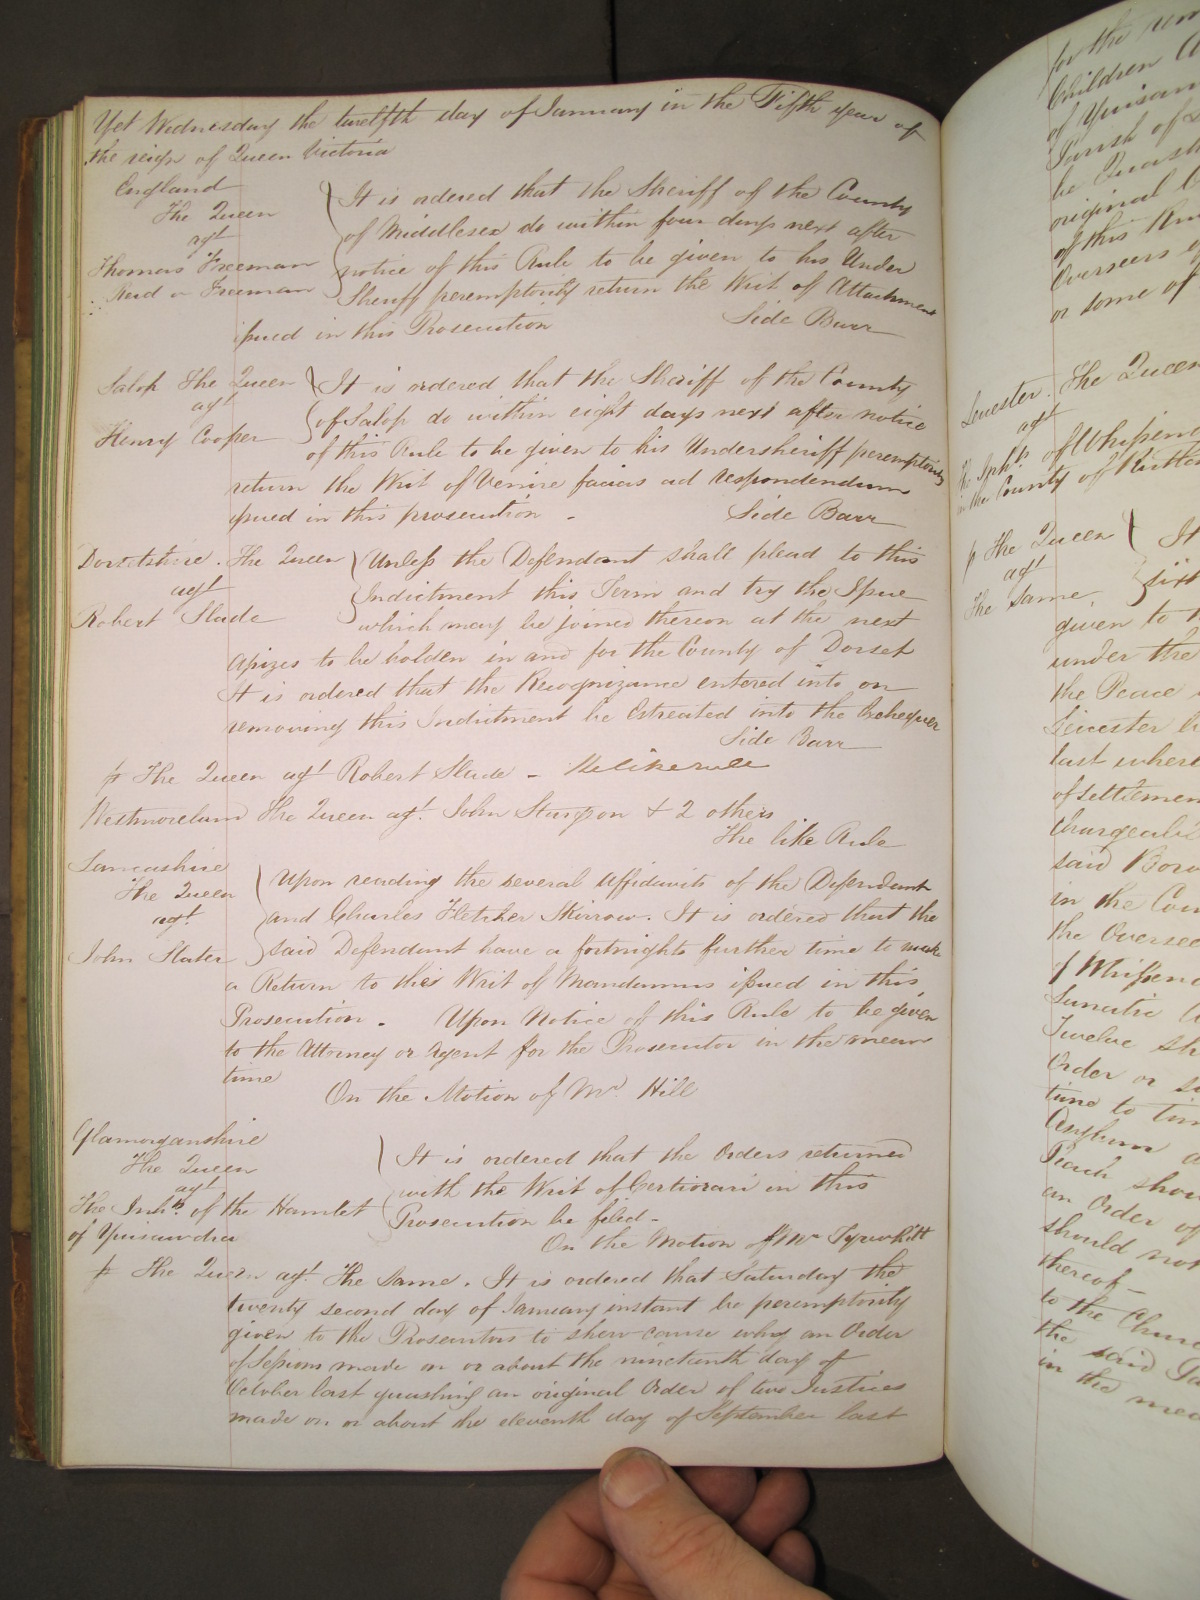 Yet Wednesday the twelfth day of January in the Fifth year of
the reign of Queen Victoria
England
The Queen
agt
Thomas Freeman
Read or Freeman
It is ordered that the Sheriff of the County
of Middlesex do within four days next after
notice of this Rule to be given to his Under
Sheriff peremptorily return the Writ of Attachment
issued in this Prosecution
Side Barr
Salop The Queen
agt
Henry Cooper
It is ordered that the Sheriff of the County
of Salop do within eight days next after notice
of this Rule to be given to his Undersheriff peremptorily
return the Writ of Venire facias ad respondendum
issued in this prosecution -
Side Barr
Dorsetshire. The Queen
agt
Robert Slade
Unless the Defendant shall plead to this
Indictment this Term and try the Issue
which may be joined thereon at the next
Assizes to be holden in and for the County of Dorset
It is ordered that the Recognizance entered into on
removing this Indictment be Estreated into the Exchequer
Side Barr
The Queen agt Robert Slade - The like rule
Westmoreland The Queen agt. John Sturgeon & 2 others
The like Rule
Lancashire
The Queen
agt.
John Slater
Upon reading the several Affidavits of the Defendant
and Charles Fletcher Skirrow. It is ordered that the
said Defendant have a fortnights further time to make
a Return to the Writ of Mandamus issued in this
Prosecution. Upon Notice of this Rule to be given
to the Attorney or Agent for the Prosecutor in the mean
time
On the Motion of Mr. Hill
Glamorganshire
The Queen
agt
The Inhts. of the Hamlet
of Ynisawdre
It is ordered that the Orders returned
with the Writ of Certiorari in this
Prosecution be filed -
On the Motion of Mr Tyrwhitt
The Queen agt. The Same. It is ordered that Saturday the
twenty second day of January instant be peremptorily
given to the Prosecutors to show cause why an Order
of Sessions made on or about the nineteenth day of
October last quashing an original Order of two Justices
made on or about the eleventh day of September last
for the
Children
of Ynisaw
Parish of
be Quash
original
of this Ru
Overseers
or some of
Leicester. The Queen
agt
of Whissend
in the County of Rutla
The Queen
agt
The Same.
It
sixt
given to
under the
the Peace
Leicester
last where
of settlemen
Chargeable
said Boro
in the Cou
the Oversee
of Whissend
Lunatic
Twelve Sh
Order or
time to tim
Asylum
Peach shou
an Order of
should not
thereof -
to the Chur
the said
in the mea